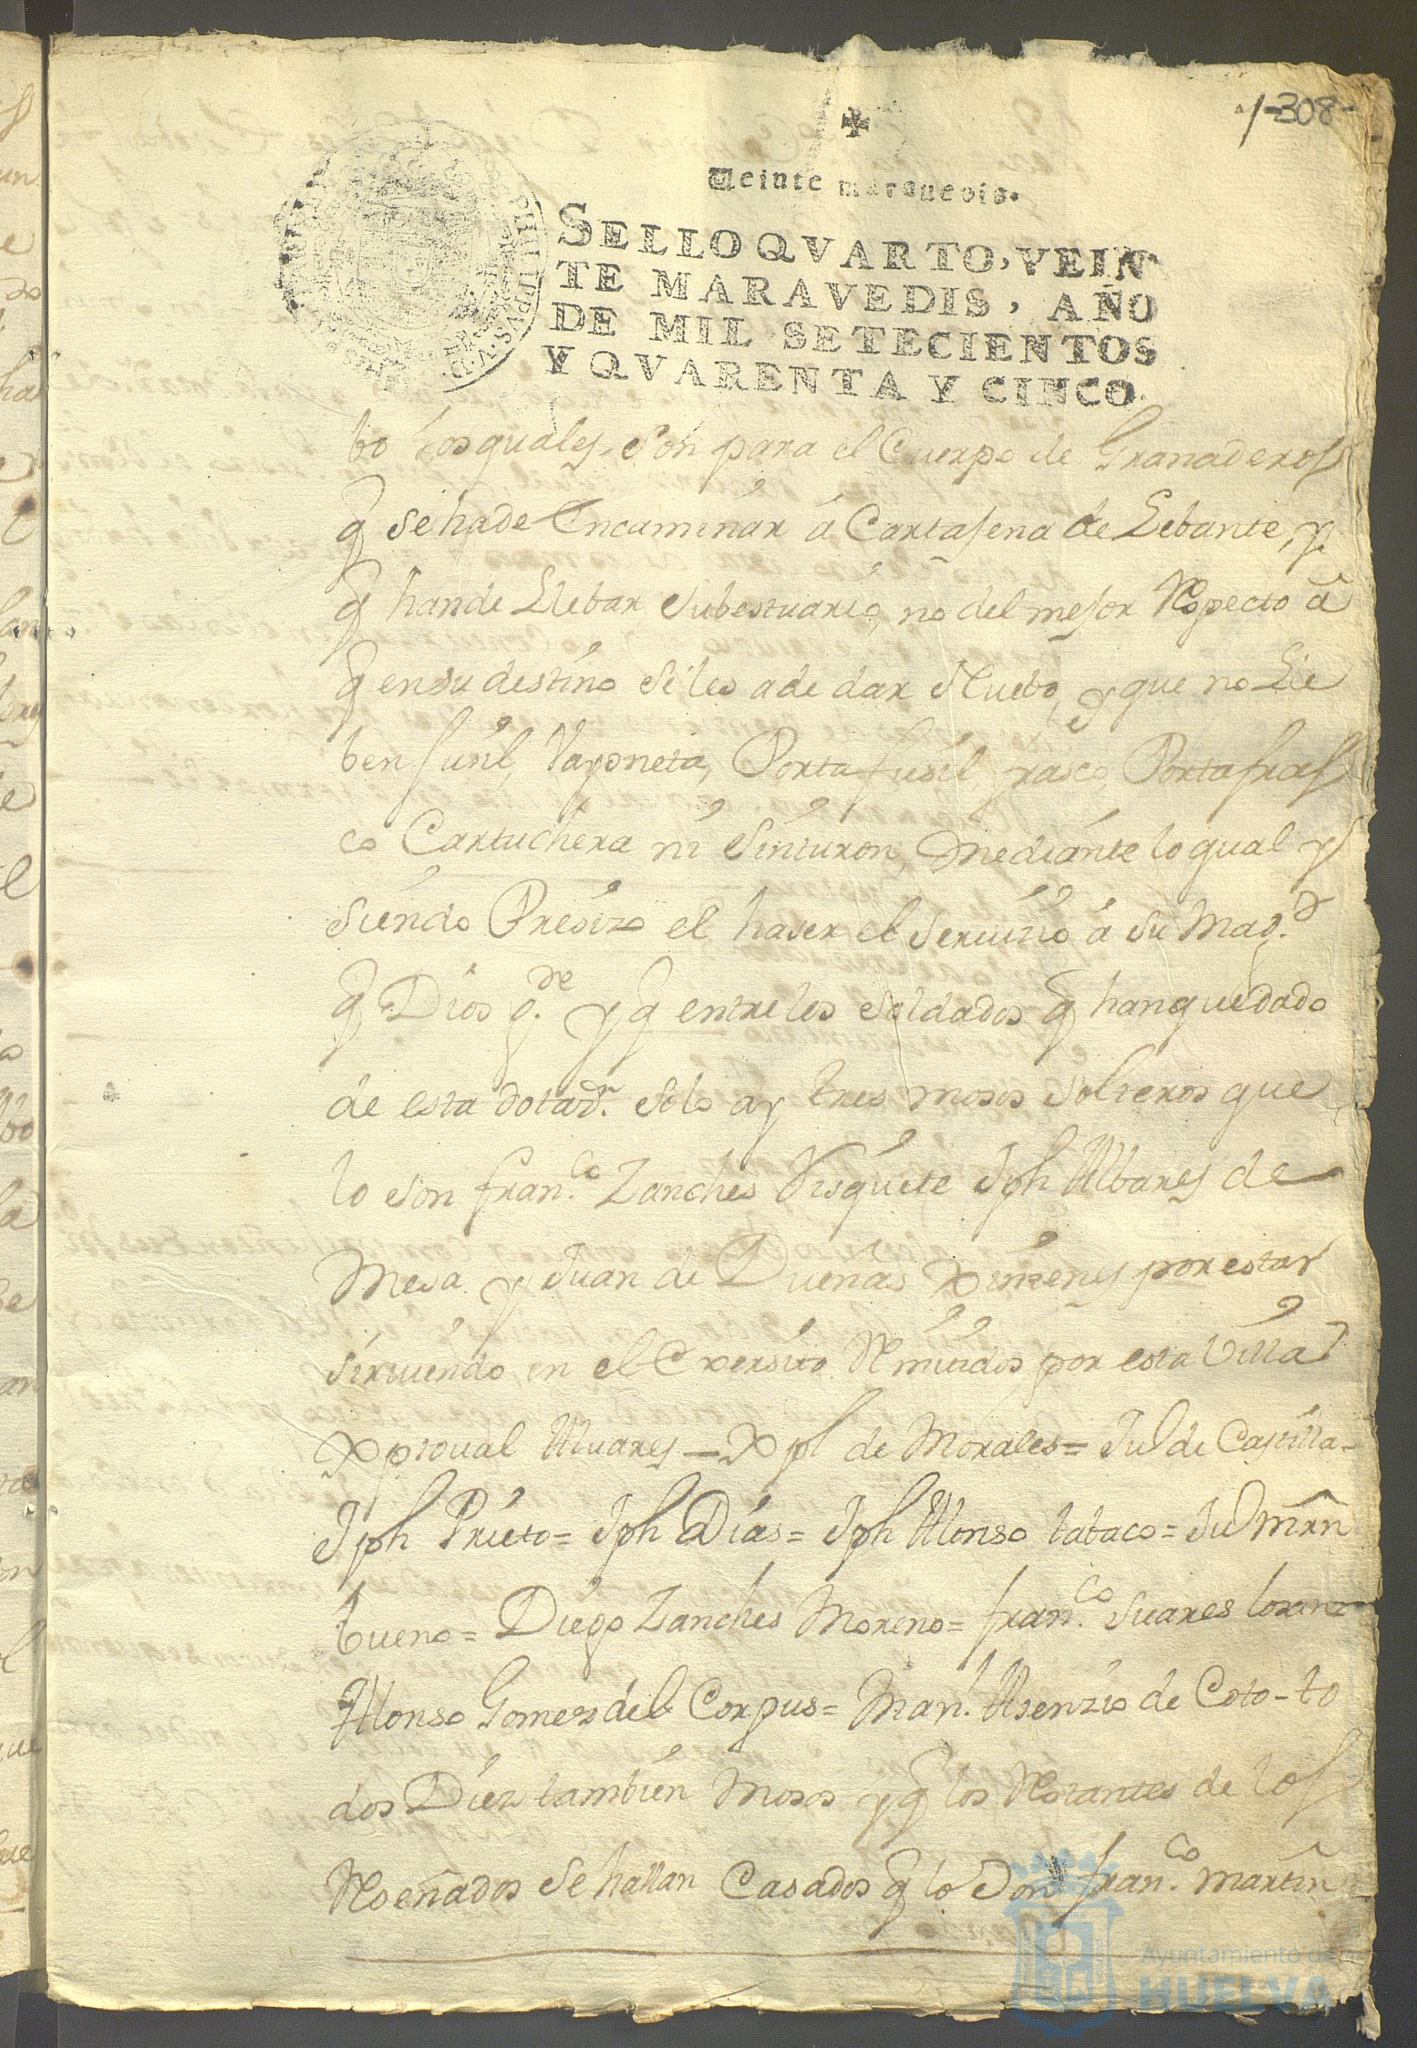 -308-
Veinte marauedis.
SELLO QVARTO, VEIN
TE MARAVEDIS, AÑO
DE MIL SETECIENTOS
Y QVARENTA Y CINCO.
bo losquales son para el Cuerpo de Granaderos
q̃ sehade Encaminar á Cartajena de Lebante, y
q̃ hande Llebar subestuario, no del mejor Respecto â
q̃ ensu destino seles ade dar Nuebo, y que no Lle
ben fusil, Vayoneta, Portafusil, frasco, Portafras
co Cartuchera ni Sinturon, Mediante lo qual y
siendo Presizo el haser el seruizio á su Mag.d
q̃ Dios g.de y q̃ entre los soldados q̃ hanquedado
de esta dotaz.n solo ay tres mosos solteros que
lo son fran.co Zanches Visquete Jph Albares de
Mesa y Juan de Dueñas Ximenes por estar
siruiendo en el Exersito Remitidos por esta Villa
Xptoual Aluares - Xpl de Morales = Ju.o de Castilla -
Jph Prieto = Jph Dias = Jph Alonso tabaco = Ju.o Mrn
bueno = Diego Zanches Moreno = fran.co Suares
Alonso Gomes del Corpus = Man.l Asenzio de Coto - to
dos Diez tambien Mosos y q̃ los Restantes de los
Reseñados se hallan Casados q̃ lo son fran.co Martin
Ayuntamiento de
HUELVA